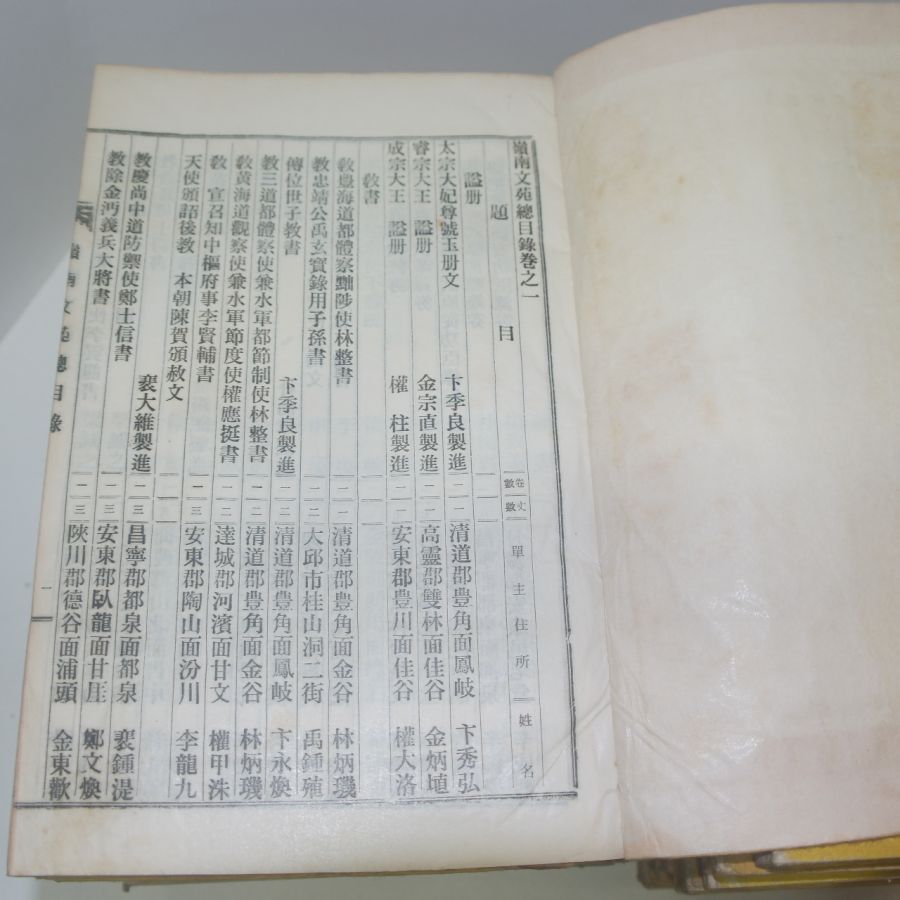 嶺南文苑總目錄卷之一
題 目 卷數 丈數 單主住所 姓名
諡册
太宗大妃尊號玉册文 卞季良製進 一 一 清道郡豊角面鳳岐 卞秀弘
睿宗大王 諡册 金宗直製進 一 一 高靈郡雙林面佳谷 金炳埴
成宗大王 諡册 權柱製進 一 一 安東郡豊川面佳谷 權大洛
教書
教豊海道都體察黜陟使林整書 一 一 清道郡豊角面金谷 林炳璣
教忠靖公禹玄寶錄用子孫書 一 二 大邱市桂山洞二街 禹鍾殖
傳位世子教書 卞季良製進 一 二 清道郡豊角面鳳岐 卞永煥
教三道都體察使兼水軍都節制使林整書 一 二 清道郡豊角面金谷 林炳璣
教黃海道觀察使兼水軍節度使權應挺書 一 二 達城郡河濱面甘文 權甲洙
教 宣召知中樞府事李賢輔書 一 三 安東郡陶山面汾川 李龍九
天使頒詔後教 本朝陳賀頒赦文
裵大維製進 一 三 昌寧郡都泉面都泉 裵鍾湜
教慶尚中道防禦使鄭士信書 一 三 安東郡臥龍面甘厓 鄭文煥
教除金沔義兵大將書 一 三 陜川郡德谷面浦頭 金東歡
嶺南文苑總目錄 一